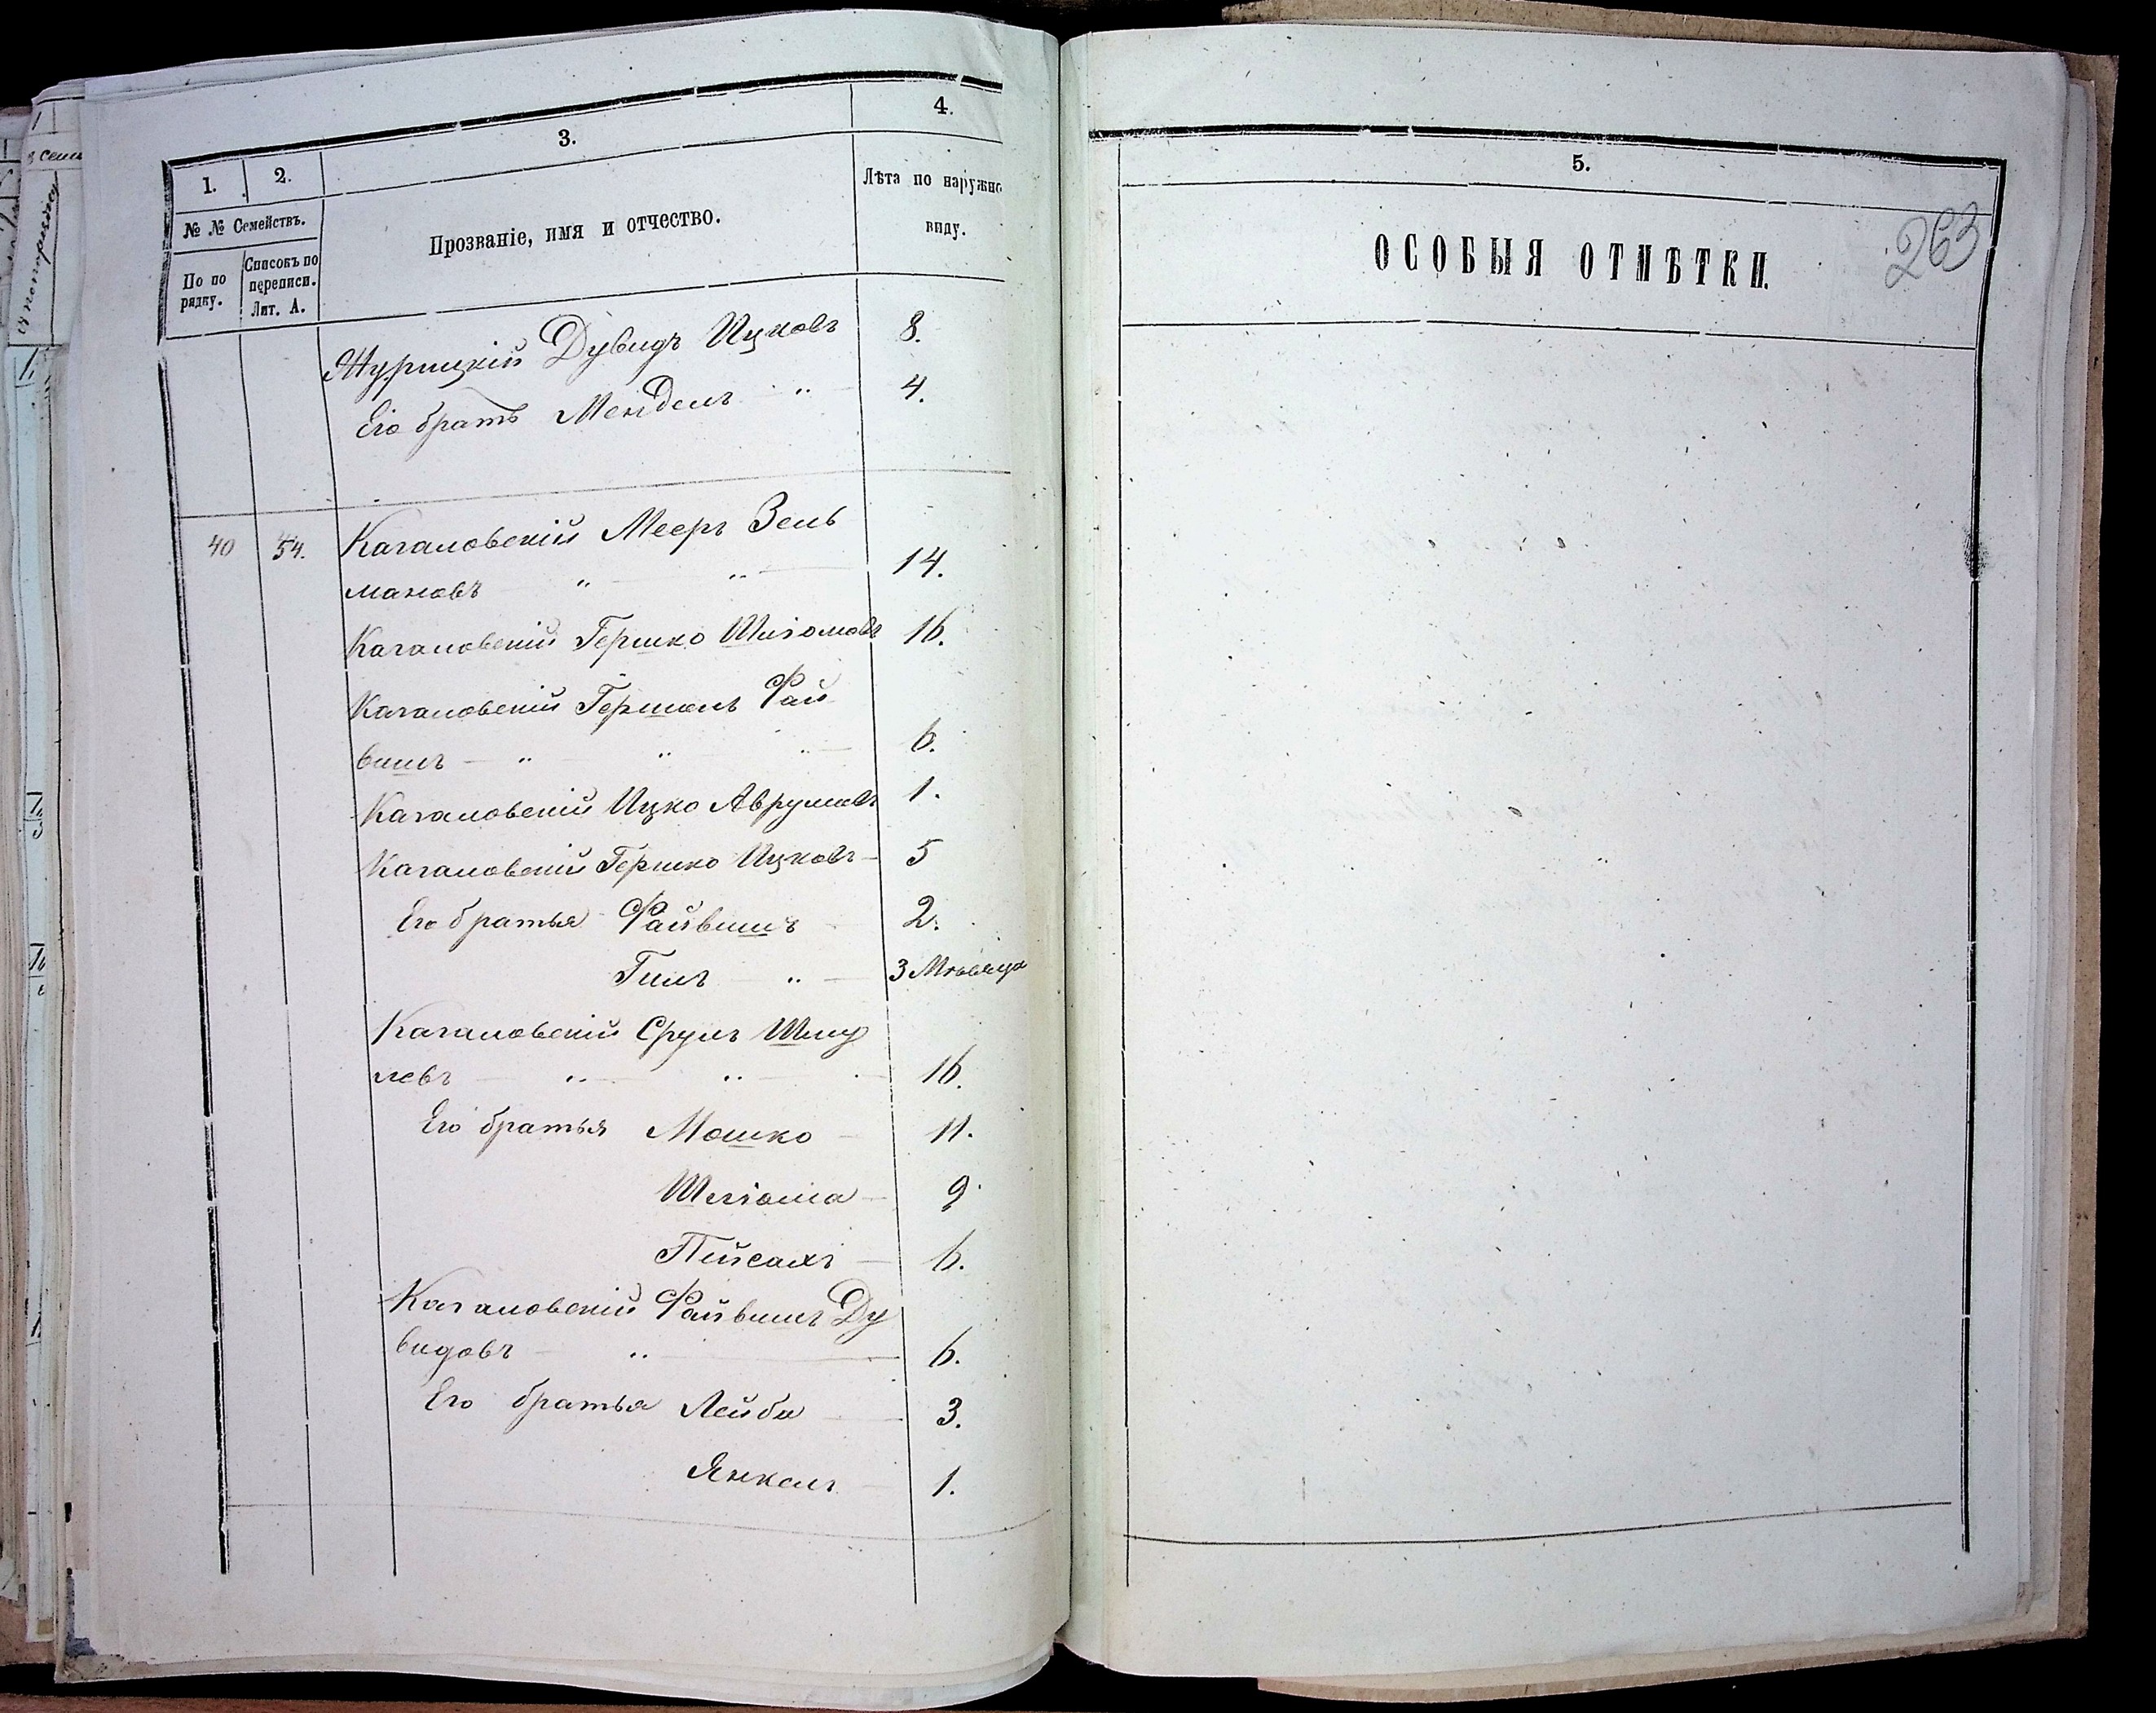 1.
2.
3.
4.
№ № Семействъ.
По по
рядку.
Списокъ по
переписи.
Лит. А.
Прозваніе, имя и отчество.
Лѣта по наружно
виду.
Журицкій Дувидъ Ицковъ 8.
Его братъ Мендель " 4.
40 54. Кагаловскій Мееръ Зель
мановъ " " 14.
Кагаловскій Гершко Шліомовъ 16.
Кагаловскій Гершонъ Фай
вишъ " " " 6.
Кагаловскій Ицко Аврумовъ 1.
Кагаловскій Гершко Ицковъ 5
Его братья Файвишъ 2.
Гилъ " 3 Мѣсяца
Кагаловскій Срулъ Шму
левъ " " 16.
Его братья Мошко 11.
Шліома 9.
Пейсахъ 6.
Кагаловскій Файвишъ Ду
видовъ " 6.
Его братья Лейба 3.
Янкель 1.
5.
ОСОБЫЯ ОТМѢТКИ.
263